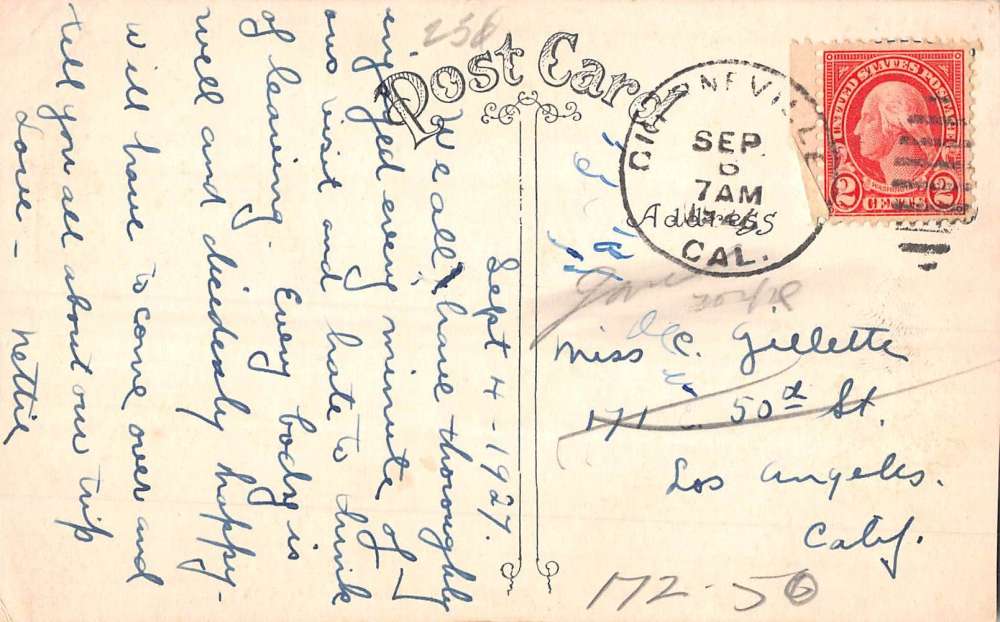 258
Post Card
UNITED STATES POST
WASHINGTON
2 CENTS 2
SEP
7AM
CAL.
Address
Sept 4 - 1927.
We all have thoroughly
enjoyed every minute of
our visit and hate to think
of leaving. Every body is
well and dicidedly happy -
will have to come over and
tell you all about our trip
Love - Nettie
Miss C. Gillette
171 50th St.
Los Angeles.
Calif.
172-56